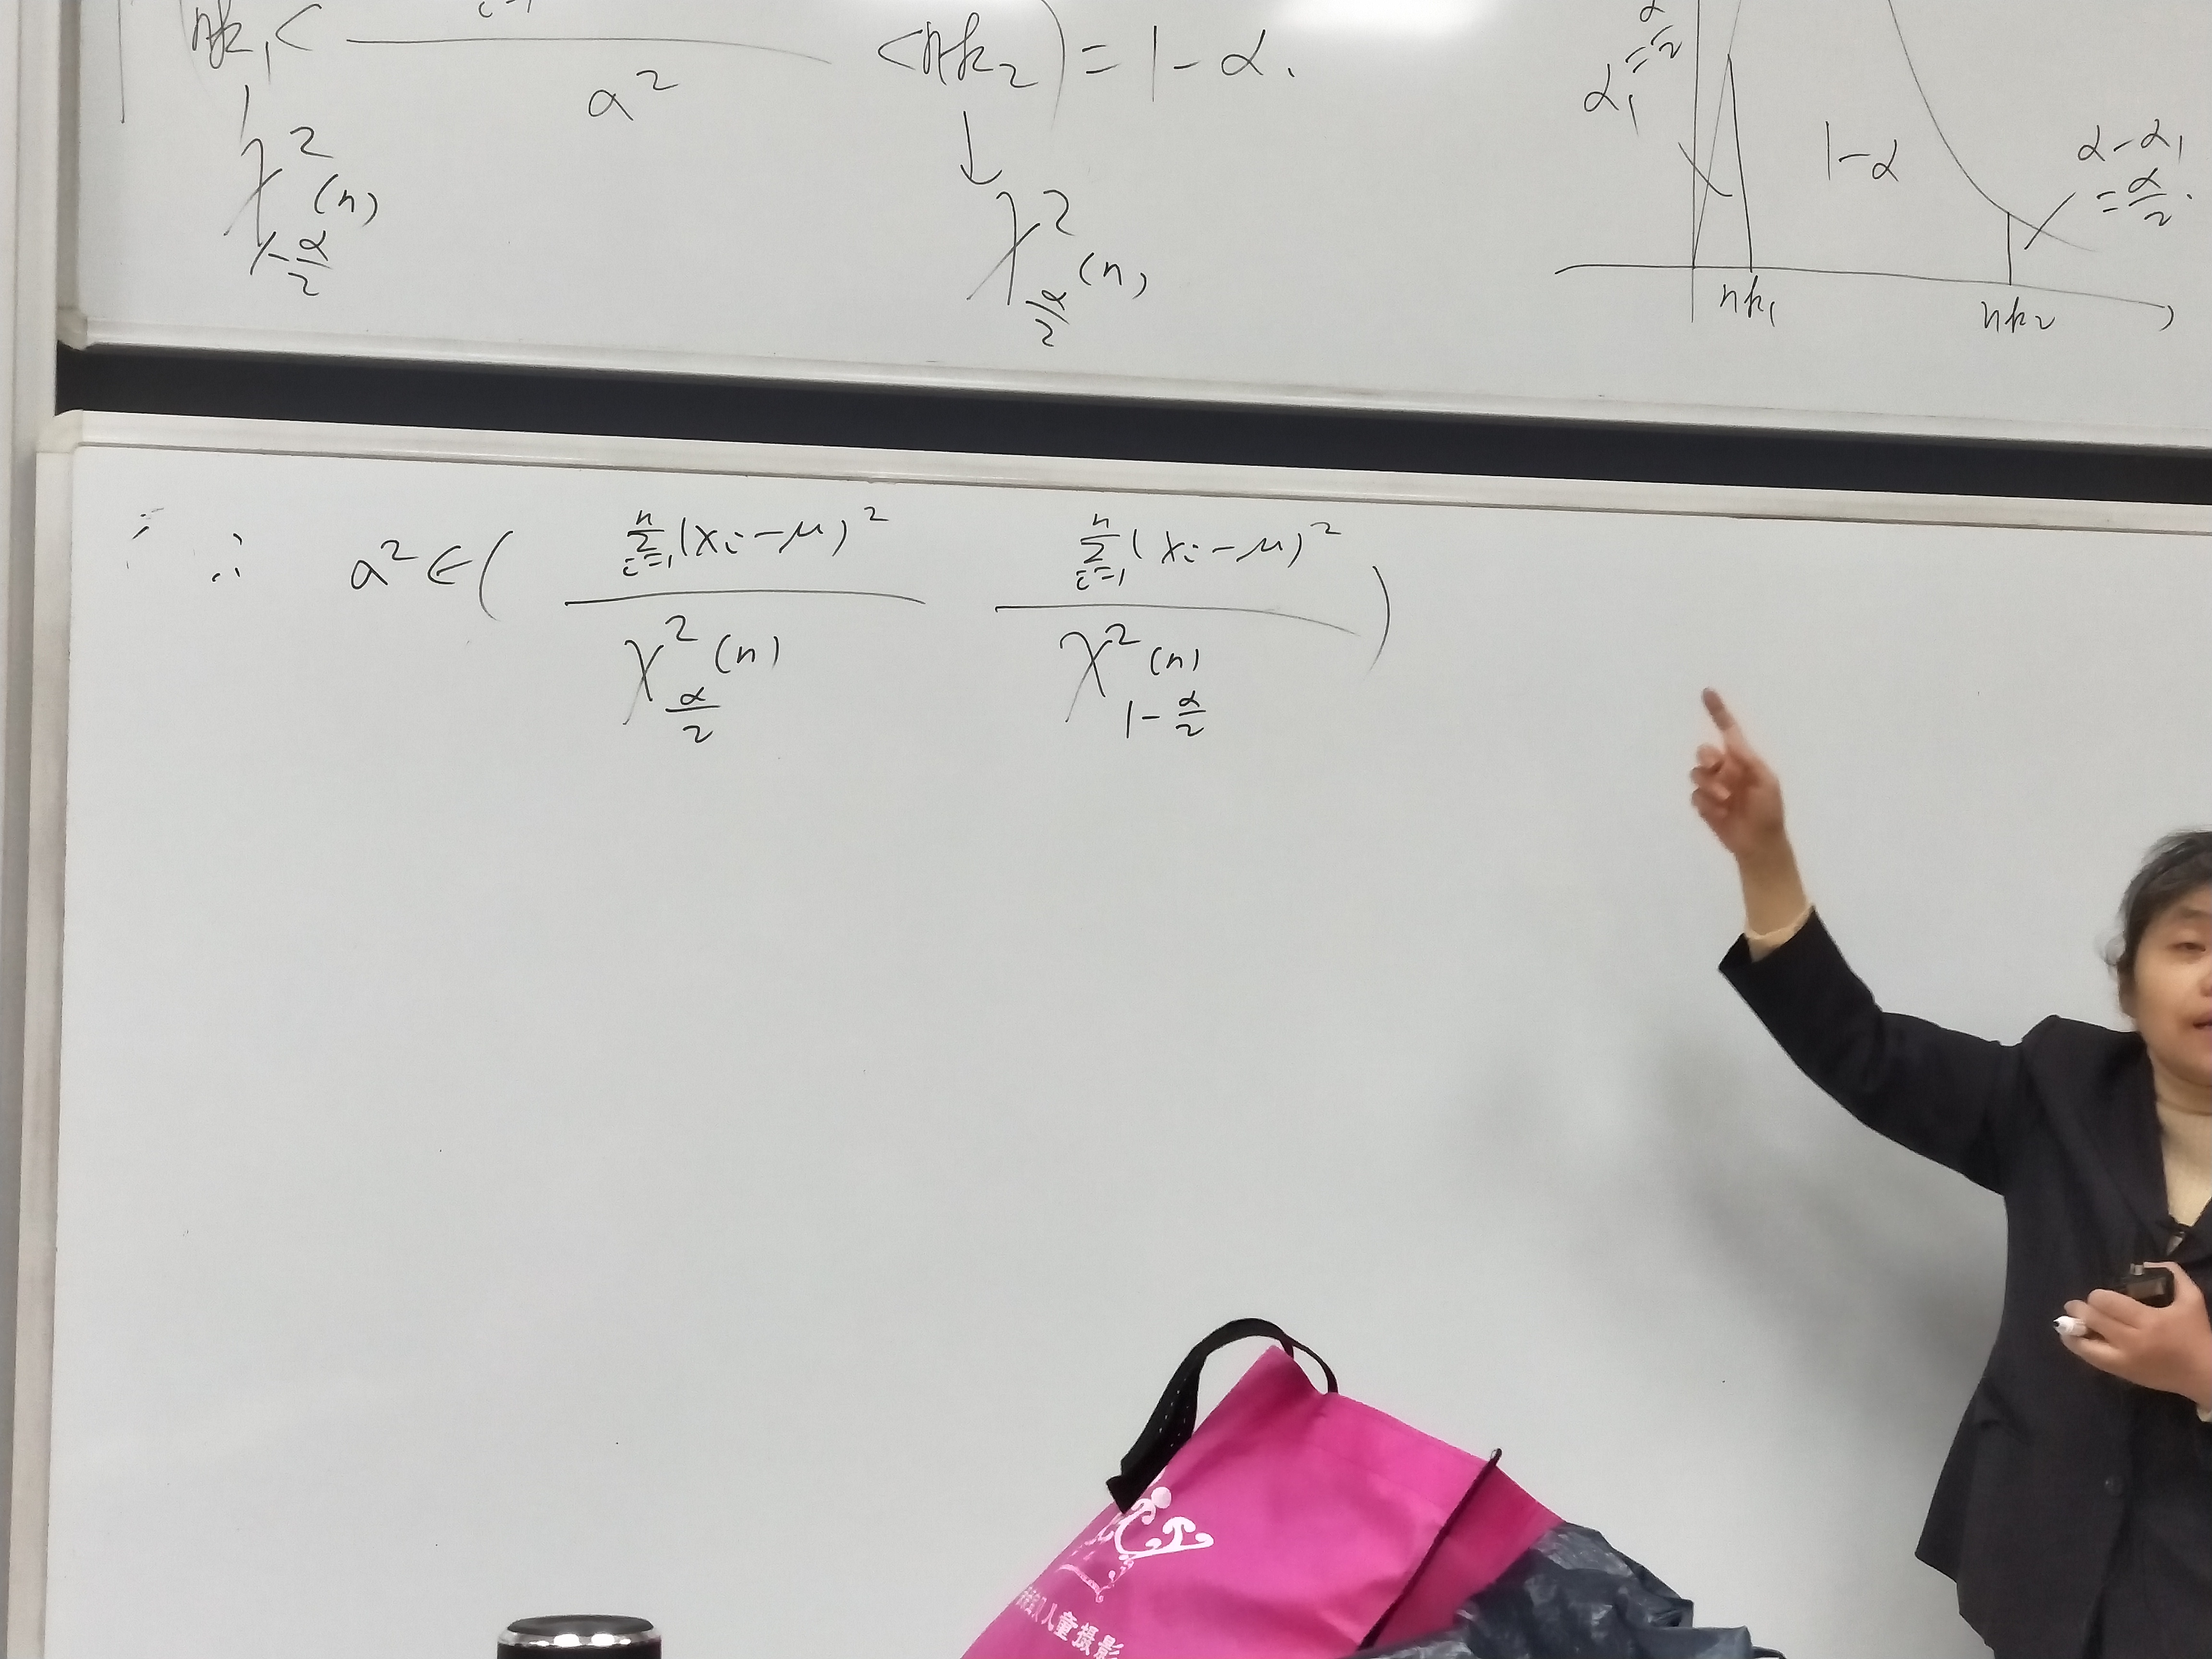 nk₁ < / a² < nk₂) = 1 - α.
χ²_{1-α/2}(n) ↓ χ²_{α/2}(n)
α₁ = α/2
1-α
α-α₁ = α/2.
nk₁ nk₂
∴ a² ∈ ( \sum_{i=1}^{n}(xi-μ)² / χ²_{α/2}(n) \sum_{i=1}^{n}(xi-μ)² / χ²_{1-α/2}(n) )
儿童摄影